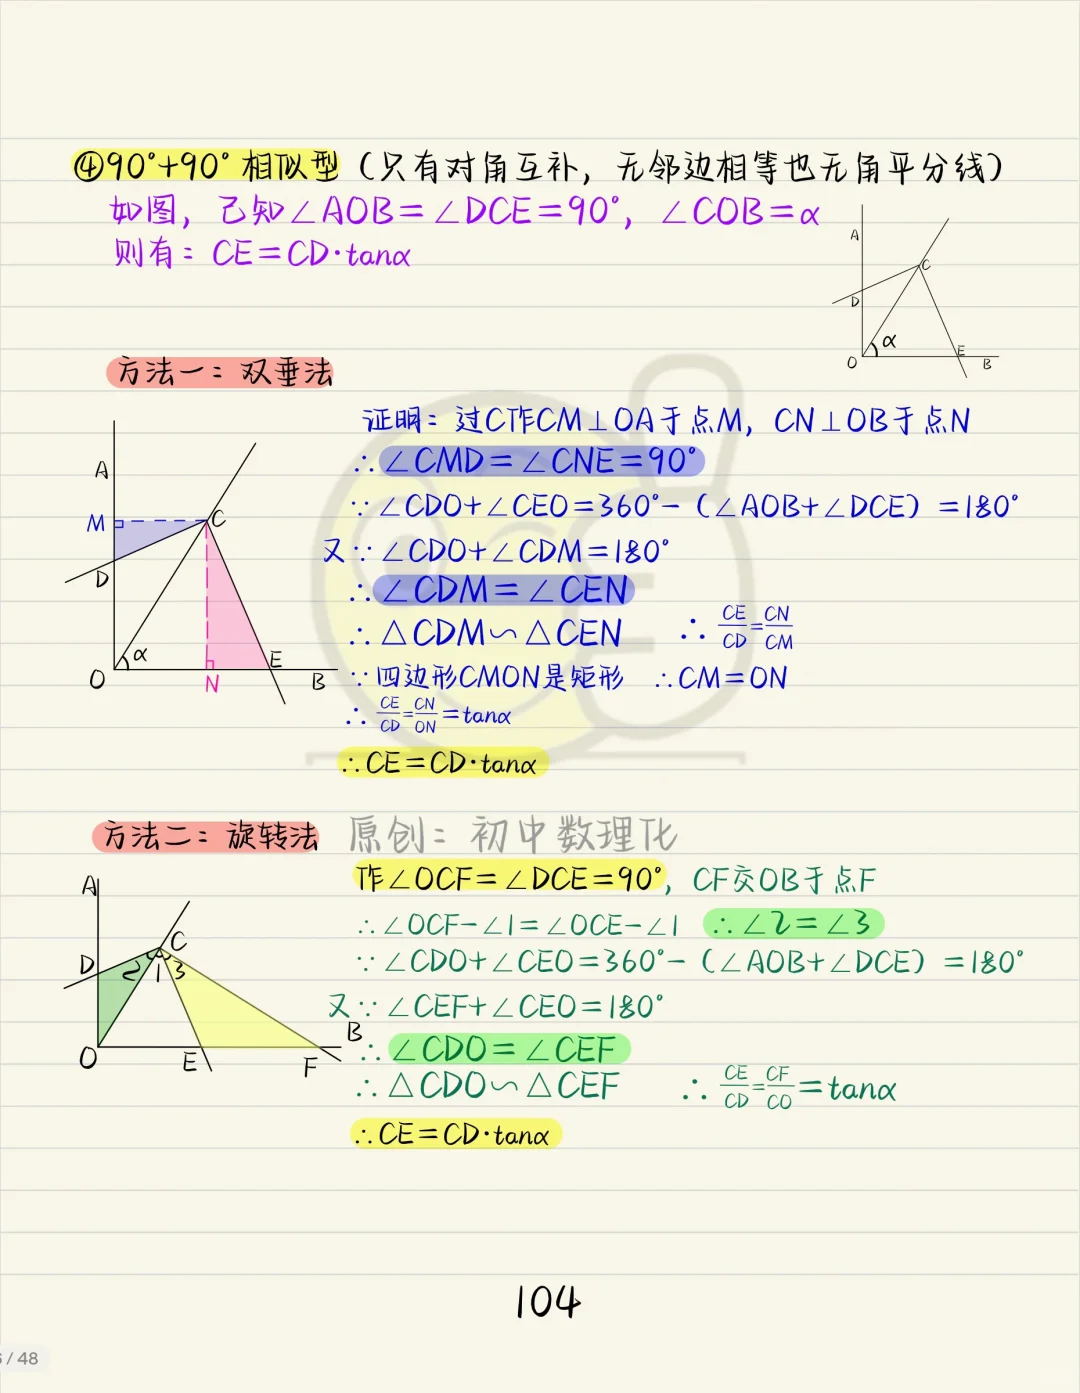 ④90°+90°相似型（只有对角互补，无邻边相等也无角平分线）
如图，已知∠AOB=∠DCE=90°，∠COB=α
则有：CE=CD·tanα
A
C
D
α
O
E
B
方法一：双垂法
证明：过C作CM⊥OA于点M，CN⊥OB于点N
∴∠CMD=∠CNE=90°
∵∠CDO+∠CEO=360°-（∠AOB+∠DCE）=180°
又∵∠CDO+∠CDM=180°
∴∠CDM=∠CEN
∴△CDM∽△CEN ∴CE/CD=CN/CM
∵四边形CMON是矩形 ∴CM=ON
∴CE/CD=CN/ON=tanα
∴CE=CD·tanα
A
M
C
D
α
O
N
E
B
方法二：旋转法 原创：初中数理化
作∠OCF=∠DCE=90°，CF交OB于点F
∴∠OCF-∠1=∠OCE-∠1 ∴∠2=∠3
∵∠CDO+∠CEO=360°-（∠AOB+∠DCE）=180°
又∵∠CEF+∠CEO=180°
∴∠CDO=∠CEF
∴△CDO∽△CEF ∴CE/CD=CF/CO=tanα
∴CE=CD·tanα
A
C
D
2 1 3
B
O
E
F
104
/ 48